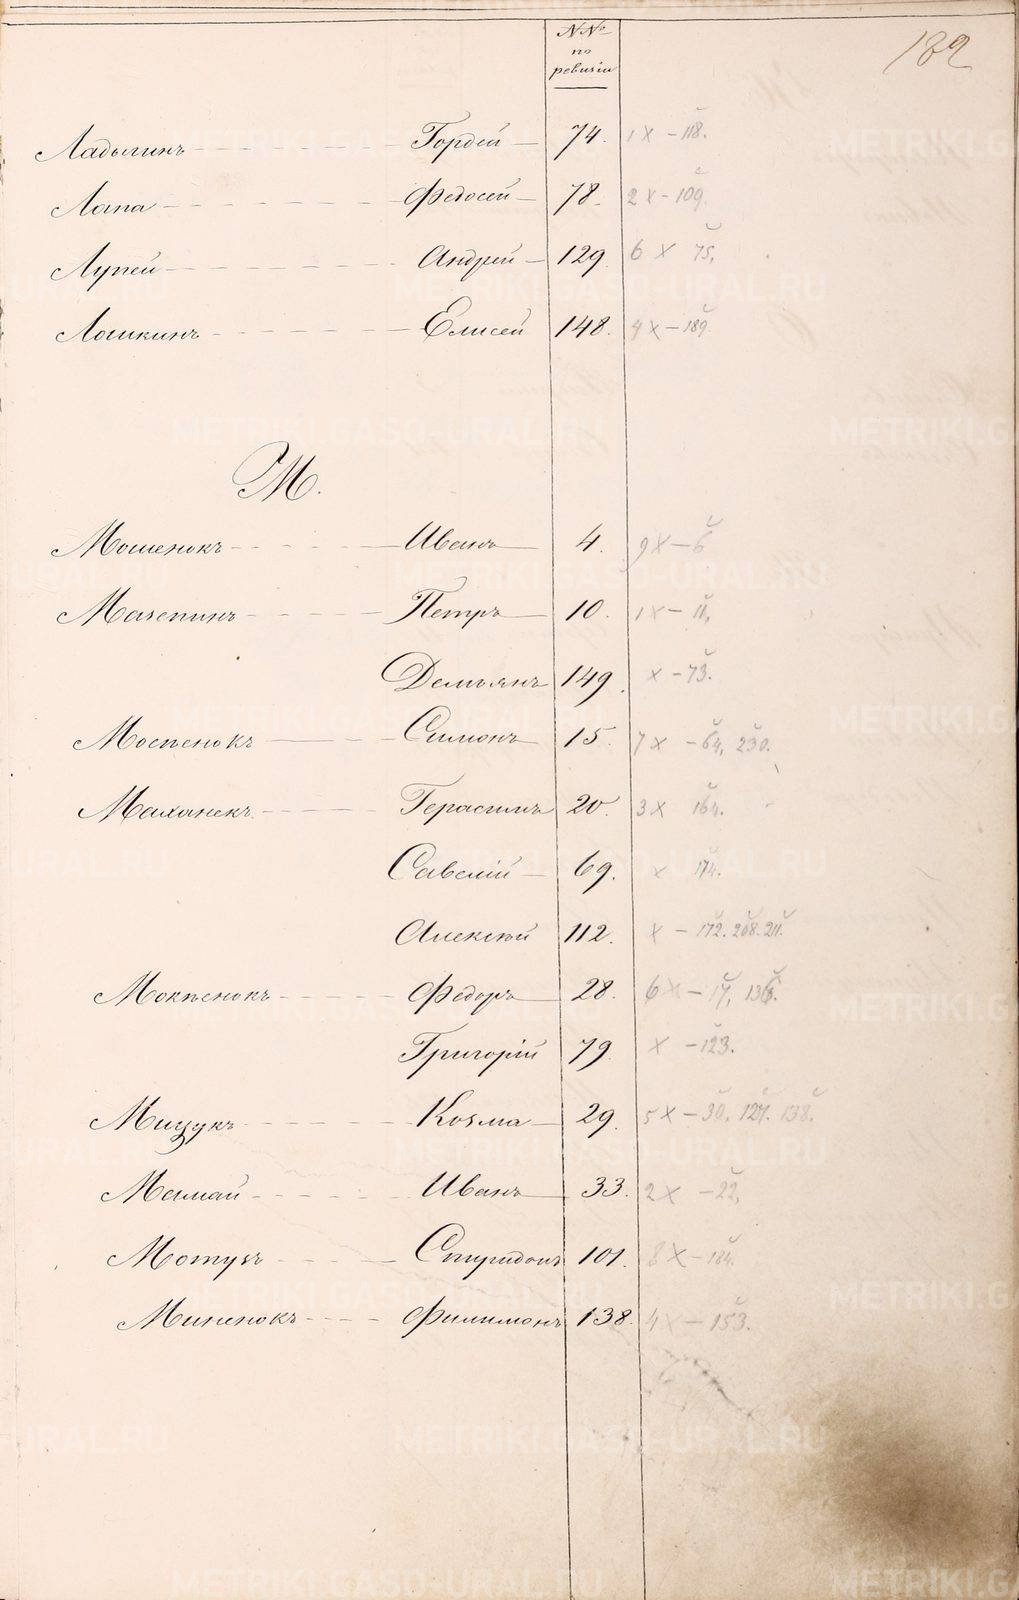 182
№№
по
ревизіи
Ладыгинъ Гордей 74. 1 x - 118.
Лапа Федосей 78. 2 x - 109.
Лупей Андрей 129 6 x 75.
Лошкинъ Елисей 148. 4 x - 189.
М.
Мошенокъ Иванъ 4. 9 x - 6
Мазепинъ Петръ 10. 1 x - 11.
Демьянъ 149. x - 73.
Мостенокъ Симонъ 15. 7 x - 64, 230.
Маханекъ Герасимъ 20. 3 x 164.
Савелій 69. x 174.
Алексѣй 112. x - 172. 208. 211.
Федоръ 28. 6 x - 17, 136.
Григорій 79. x - 123.
Мицукъ Козма 29. 5 x - 30, 127. 138.
Мамай Иванъ 33. 2 x - 22,
Мотузъ Спиридонъ 101. 8 x - 184.
Миненокъ Филимонъ 138. 4 x - 153.
METRIKI.GASO-URAL.RU